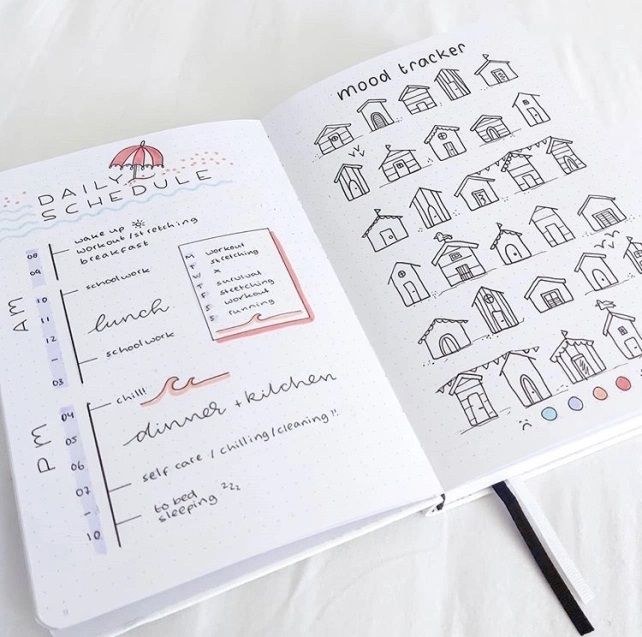 DAILY
SCHEDULE
Am
08
09
10
11
12
-
03
wake up
workout/stretching
breakfast
schoolwork
lunch
schoolwork
M workout
T stretching
W x
T survival
F stretching
S workout
S running
Pm
04
05
06
07
-
10
chill!
dinner + kitchen
self care / chilling/cleaning!!
to bed
sleeping zzz
mood tracker